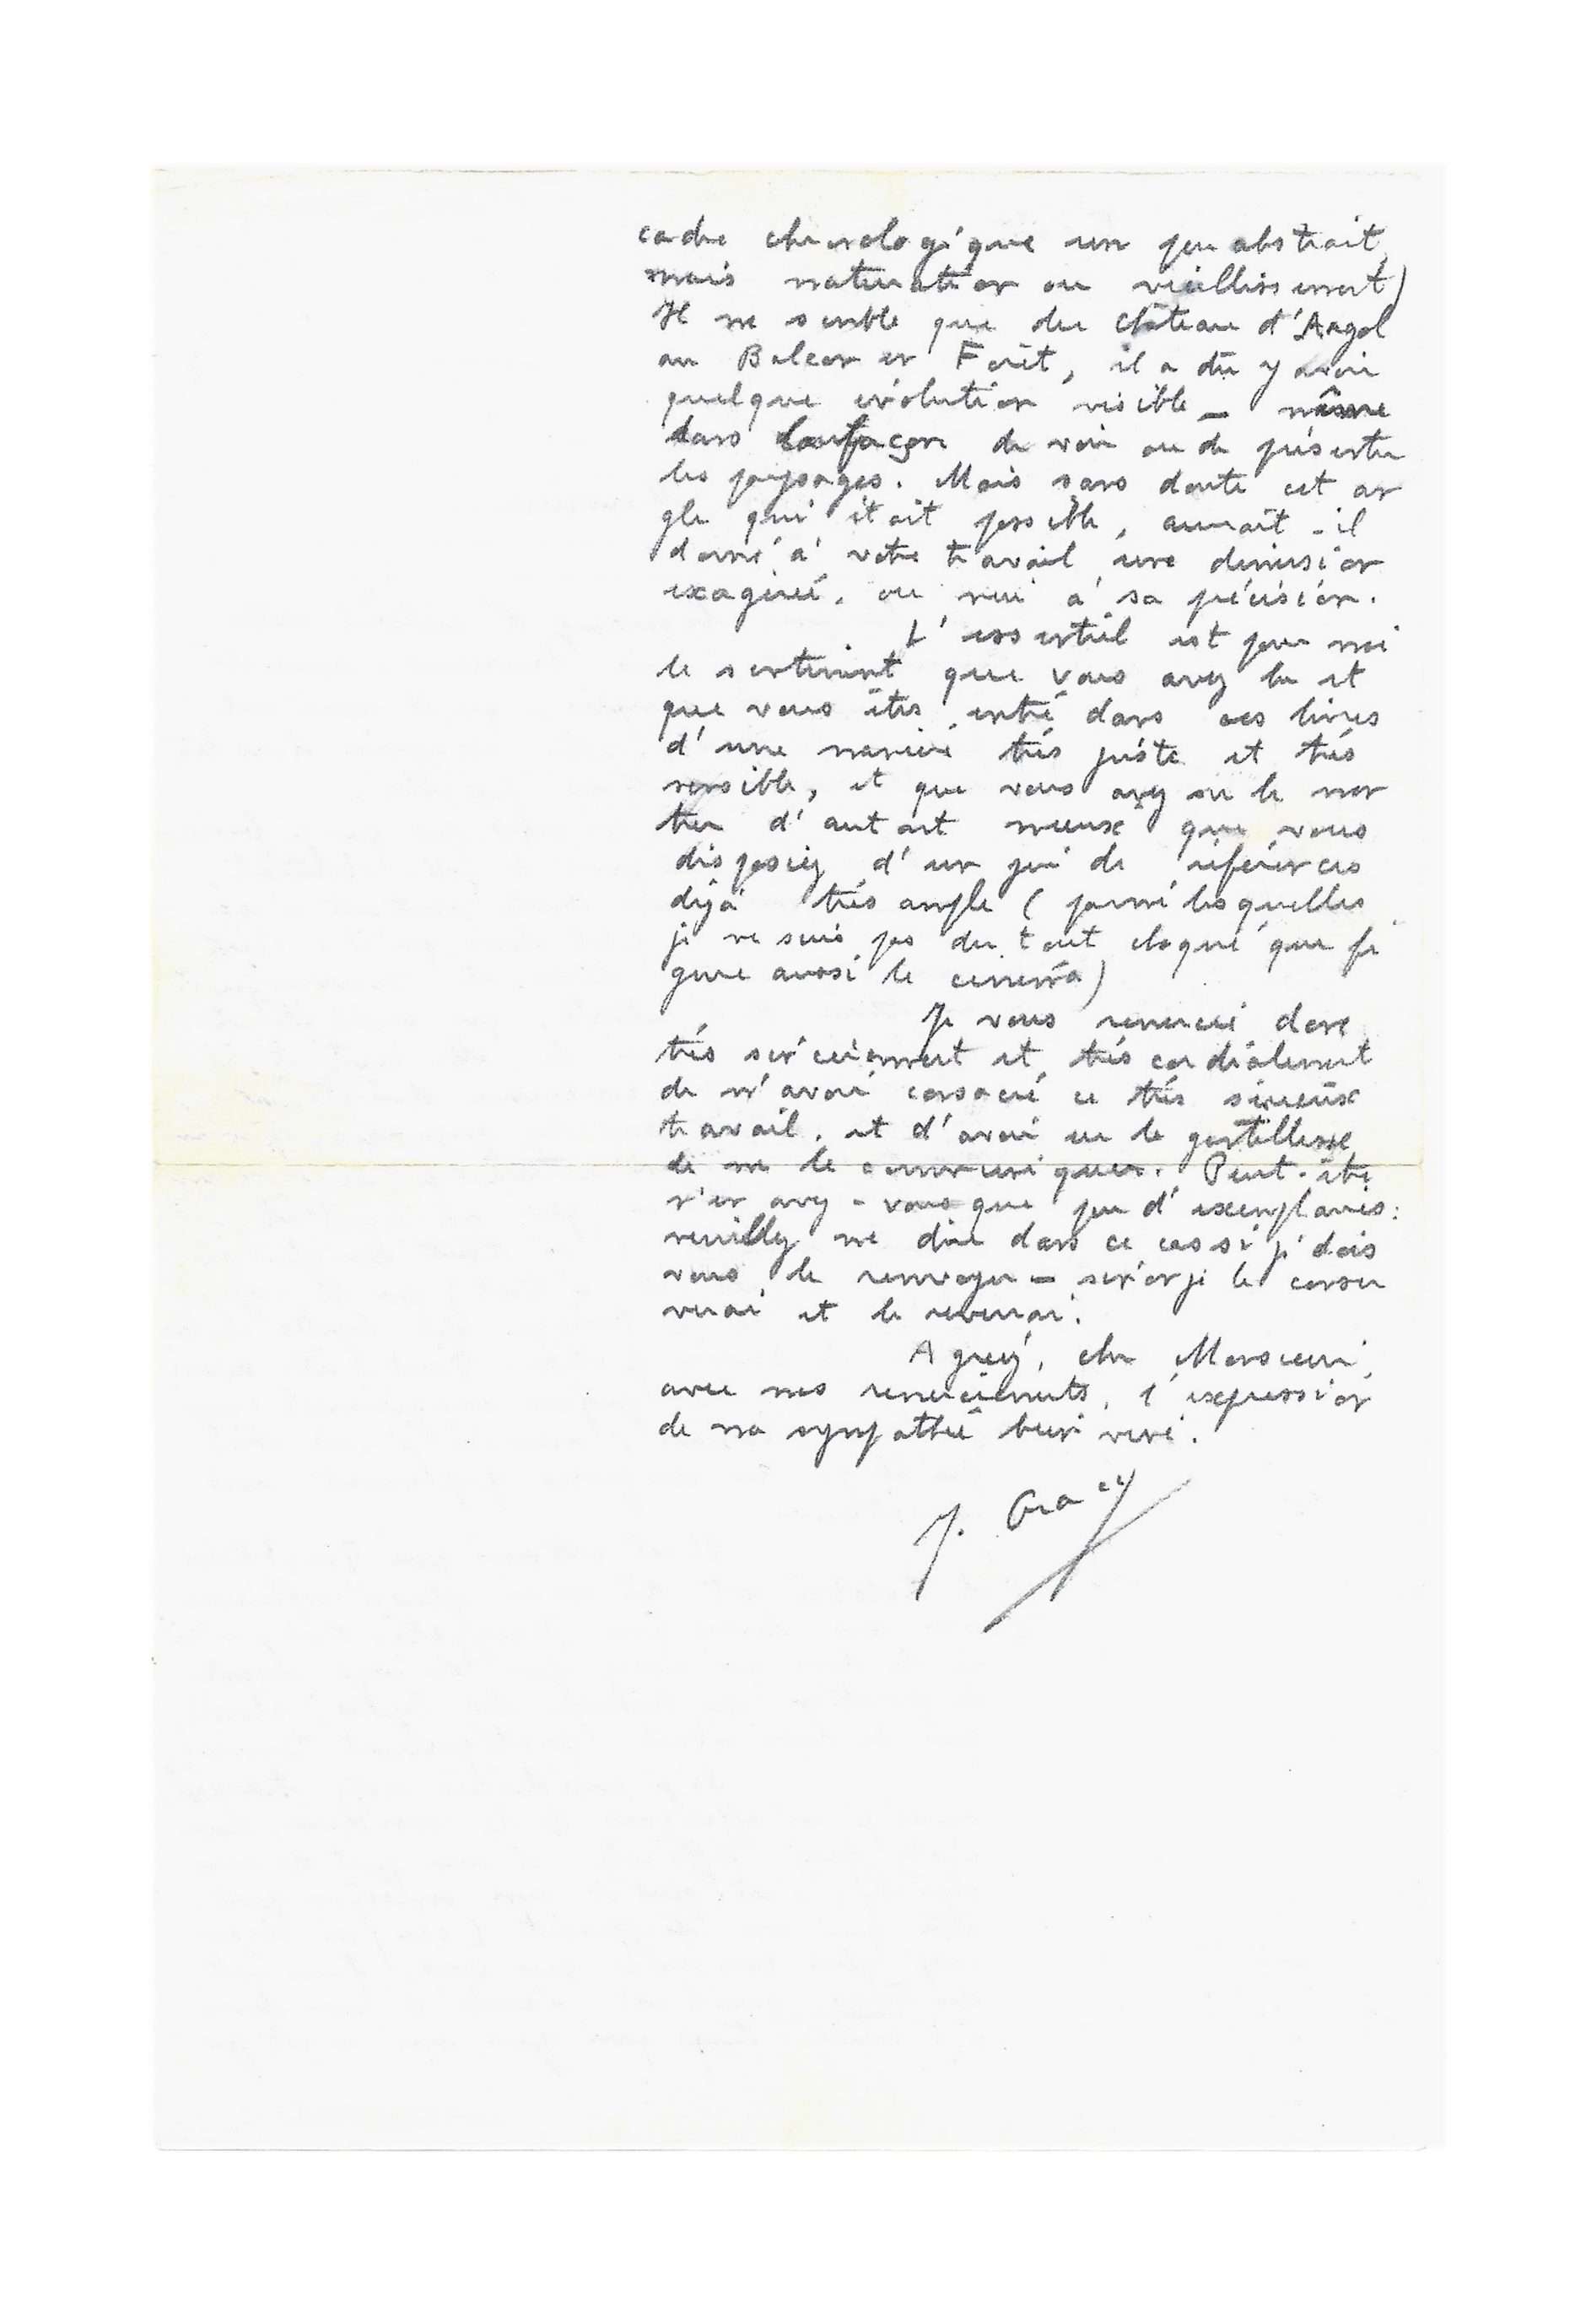 cadre chronologique un peu abstrait,
mais maturation ou vieillissement)
Il me semble que du château d'Argol
au Balcon en Forêt, il a dû y avoir
quelque évolution visible _ même
dans la façon de voir ou de présenter
les paysages. Mais sans doute cet an
gle qui était possible, aurait-il
donné à votre travail une dimension
exagérée, ou nui à sa précision.
L'essentiel est pour moi
le sentiment que vous avez lu et
que vous êtes entré dans ces livres
d'une manière très juste et très
sensible, et que vous avez su le mon
trer d'autant mieux que vous
disposiez d'un jeu de références
déjà très ample (parmi lesquelles
je ne suis pas du tout choqué que fi
gure aussi le cinéma)
Je vous remercie donc
très sincèrement et très cordialement
de m'avoir consacré ce très sérieux
travail, et d'avoir eu la gentillesse
de me le communiquer. Peut-être
n'en avez-vous que peu d'exemplaires:
veuillez me dire dans ce cas si je dois
vous le renvoyer _ sinon je le conser
verai et le reverrai.
Agréez, cher Monsieur,
avec mes remerciements, l'expression
de ma sympathie bien vive.
J. Gracq